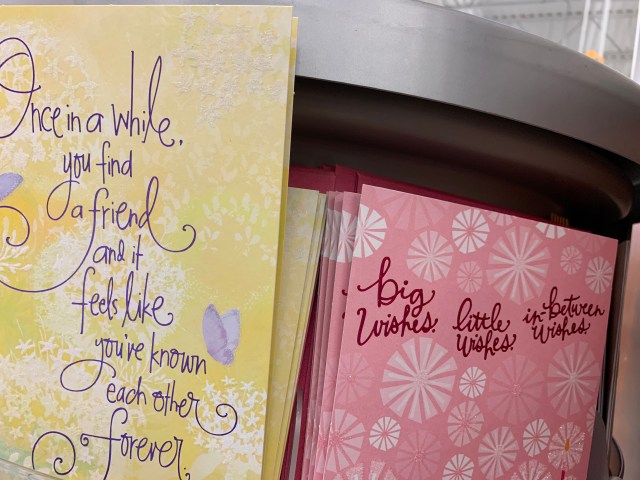 Once in a while,
you find
a friend
and it
feels like
you've known
each other
forever.
big
wishes.
little
wishes.
in-between
wishes.